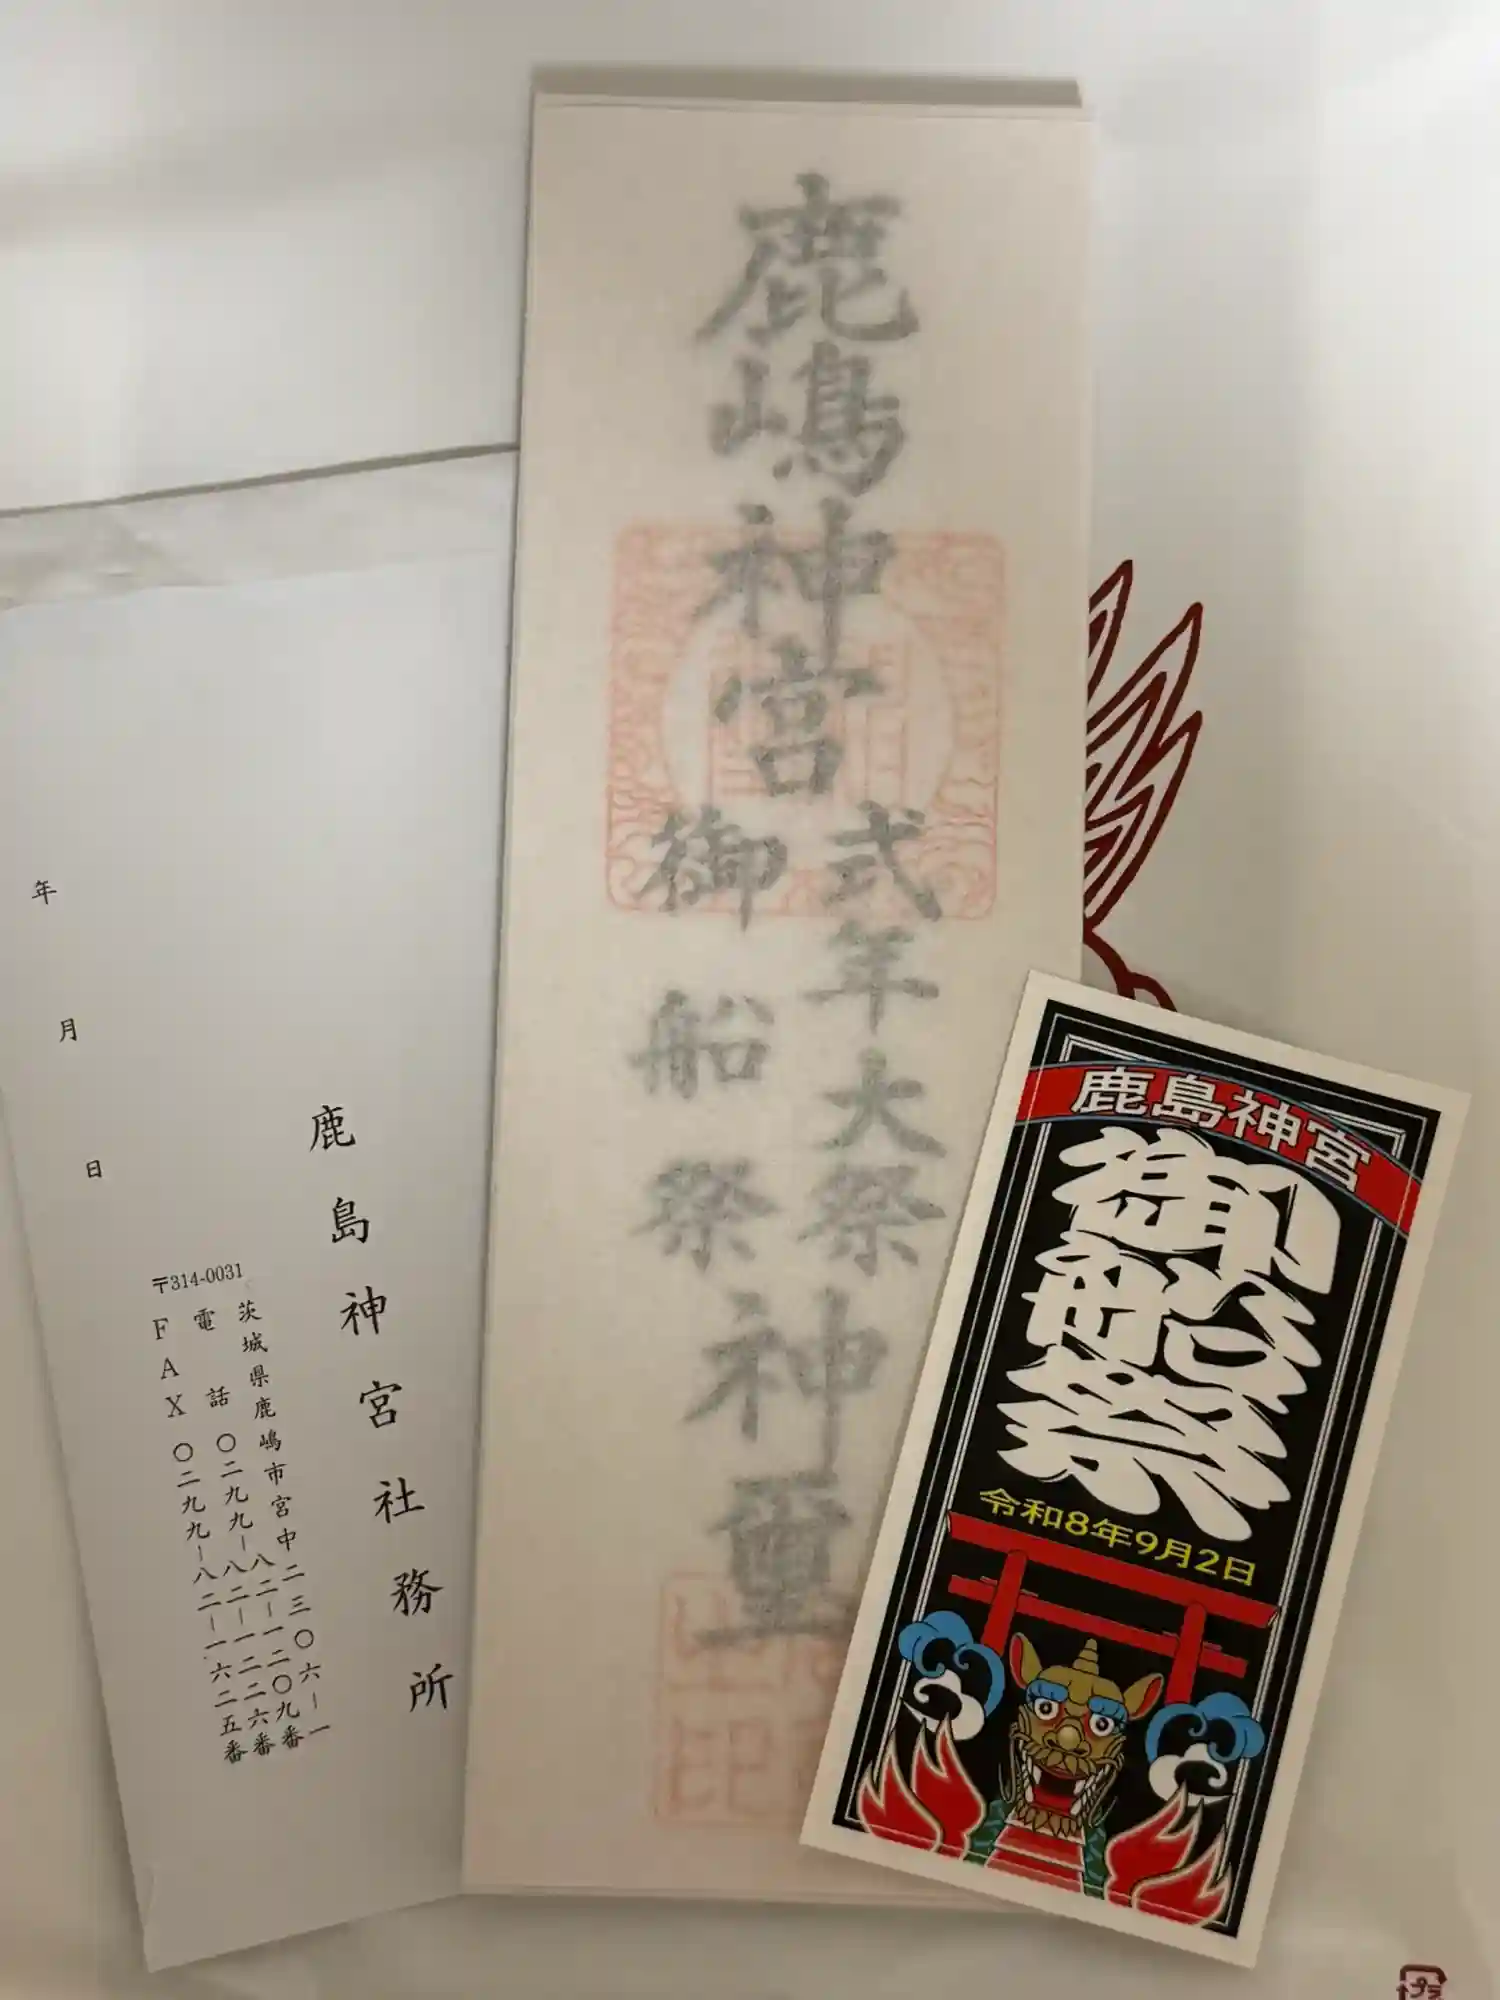 鹿嶋神宮
式年大祭
御船祭
神璽
鹿島神宮
御船祭
令和8年9月2日
年 月 日
鹿島神宮社務所
〒314-0031
茨城県鹿嶋市宮中二三〇六－一
電話 〇二九九－八二－一二〇九番
八二－一二二六番
FAX 〇二九九－八二－一六二五番
プラ